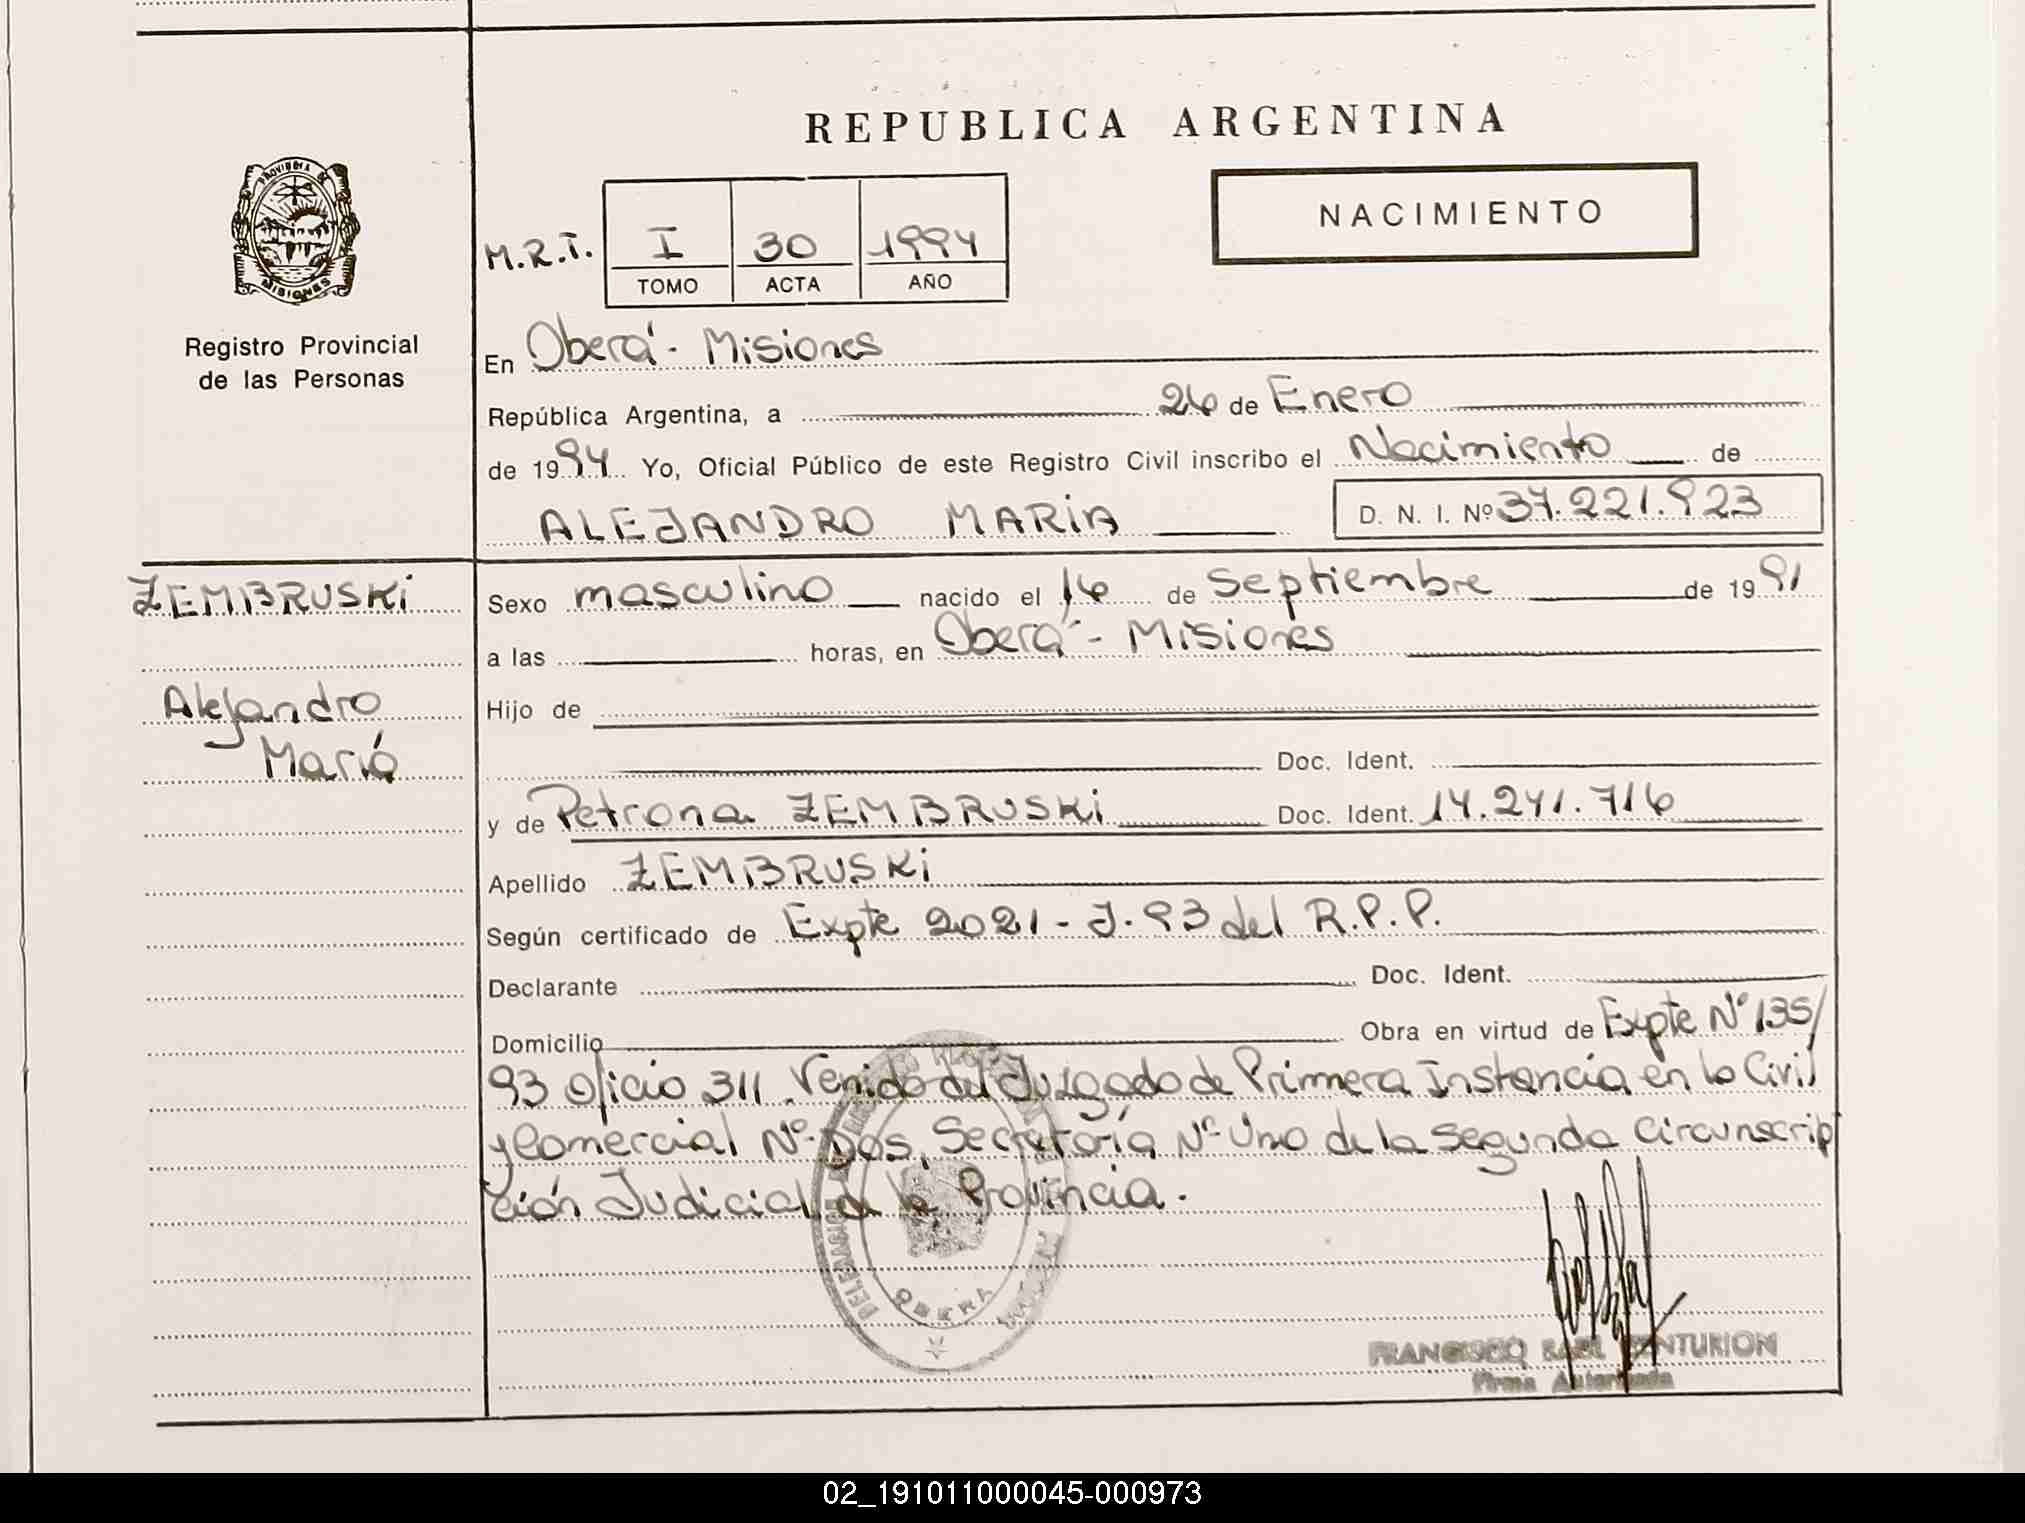 REPUBLICA ARGENTINA
NACIMIENTO
PROVINCIA DE
MISIONES
Registro Provincial
de las Personas
M.R.T. I 30 1994
TOMO ACTA AÑO
En Oberá - Misiones
República Argentina, a 26 de Enero
de 1994 Yo, Oficial Público de este Registro Civil inscribo el Nacimiento de
ALEJANDRO MARIA D. N. I. Nº 37.221.923
ZEMBRUSKI
Alejandro
María
Sexo masculino nacido el 16 de Septiembre de 1991
a las horas, en Oberá - Misiones
Hijo de
Doc. Ident.
y de Petrona ZEMBRUSKI Doc. Ident. 14.241.716
Apellido ZEMBRUSKI
Según certificado de Expte 2021 - J. 93 del R.P.P.
Declarante Doc. Ident.
Domicilio Obra en virtud de Expte Nº 135/
93 Oficio 311. Venido del Juzgado de Primera Instancia en lo Civil
y Comercial Nº Dos, Secretaría Nº Uno de la Segunda Circunscrip
ción Judicial de la Provincia.
DELEGACION
OBERA
FRANCISCO CENTURION
Firma Autorizada
02_191011000045-000973